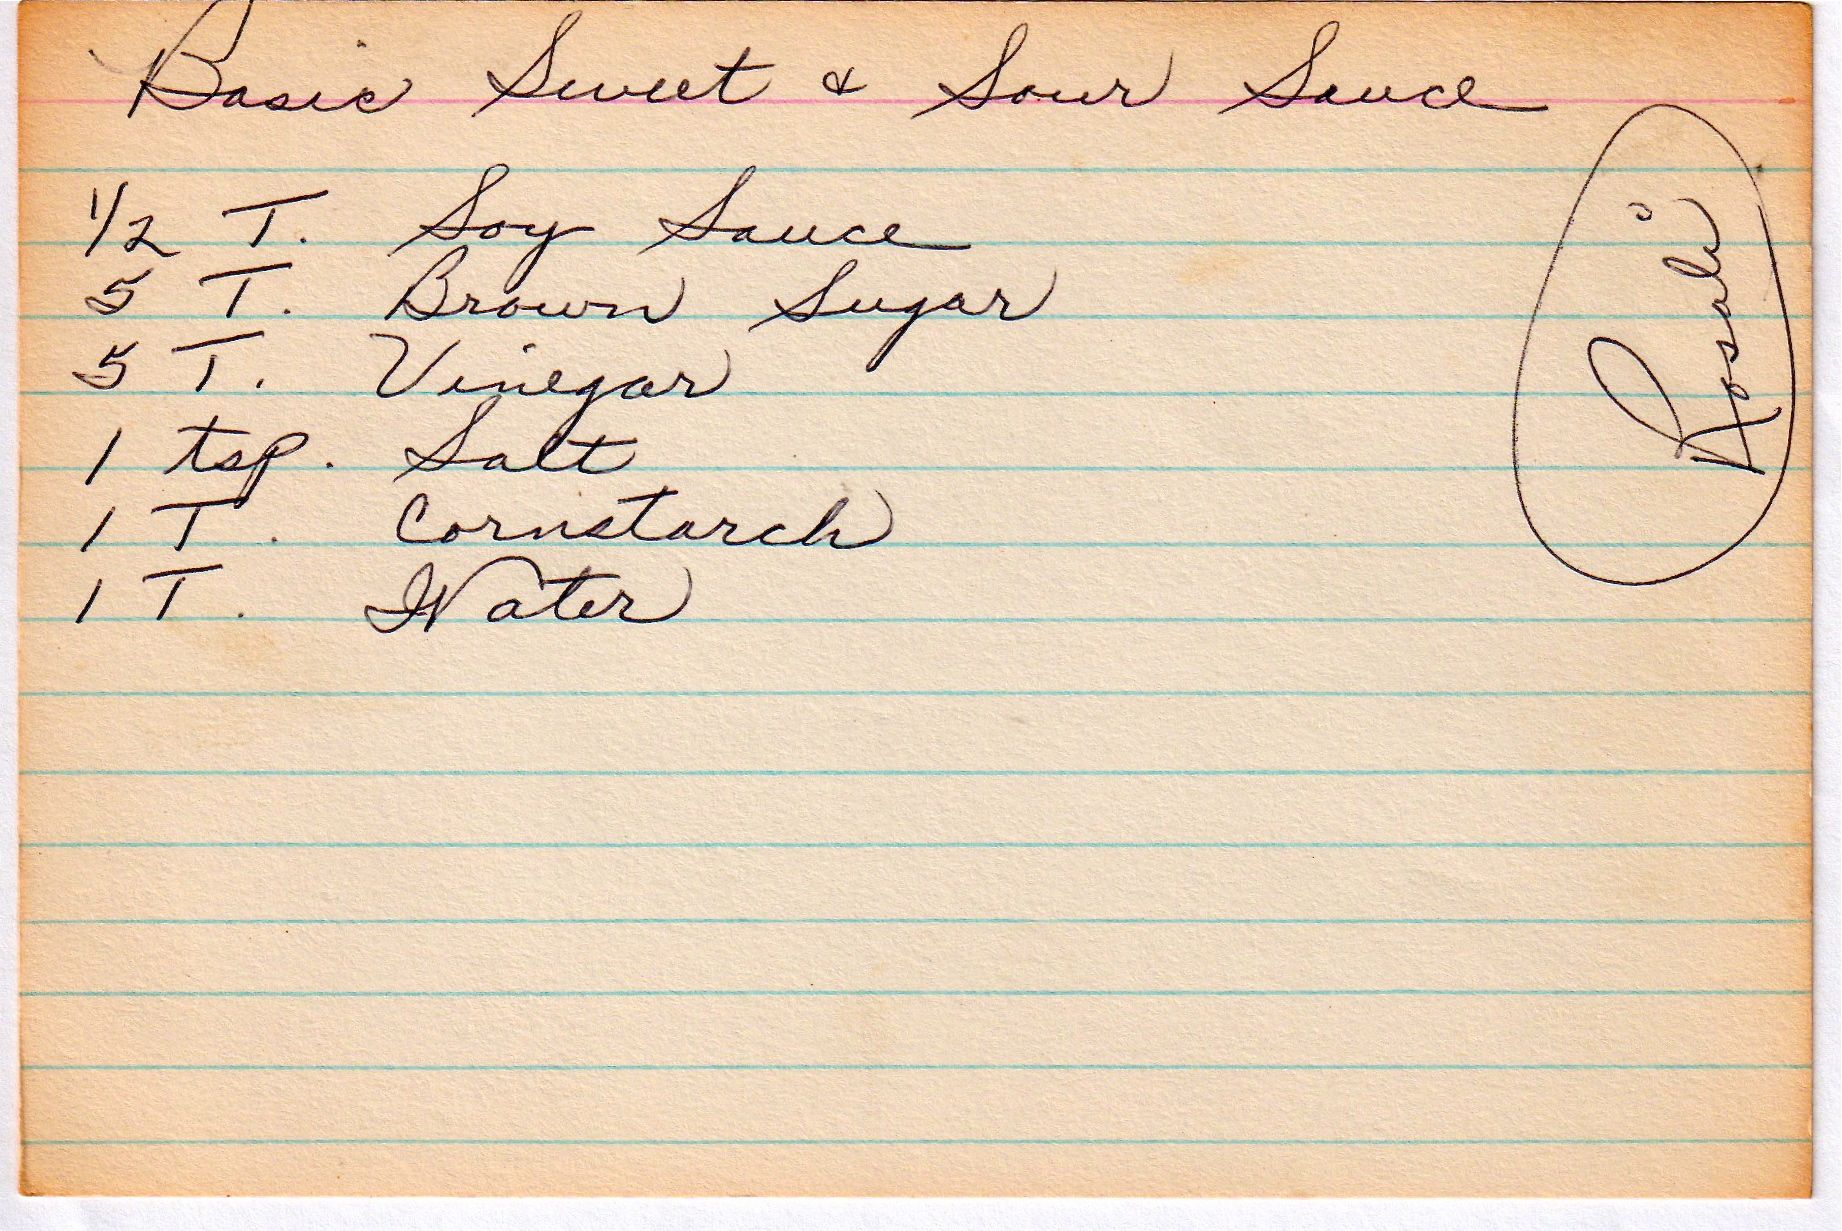 Basic Sweet & Sour Sauce
1/2 T. Soy Sauce
5 T. Brown Sugar
5 T. Vinegar
1 tsp. Salt
1 T. Cornstarch
1 T. Water
Rosali